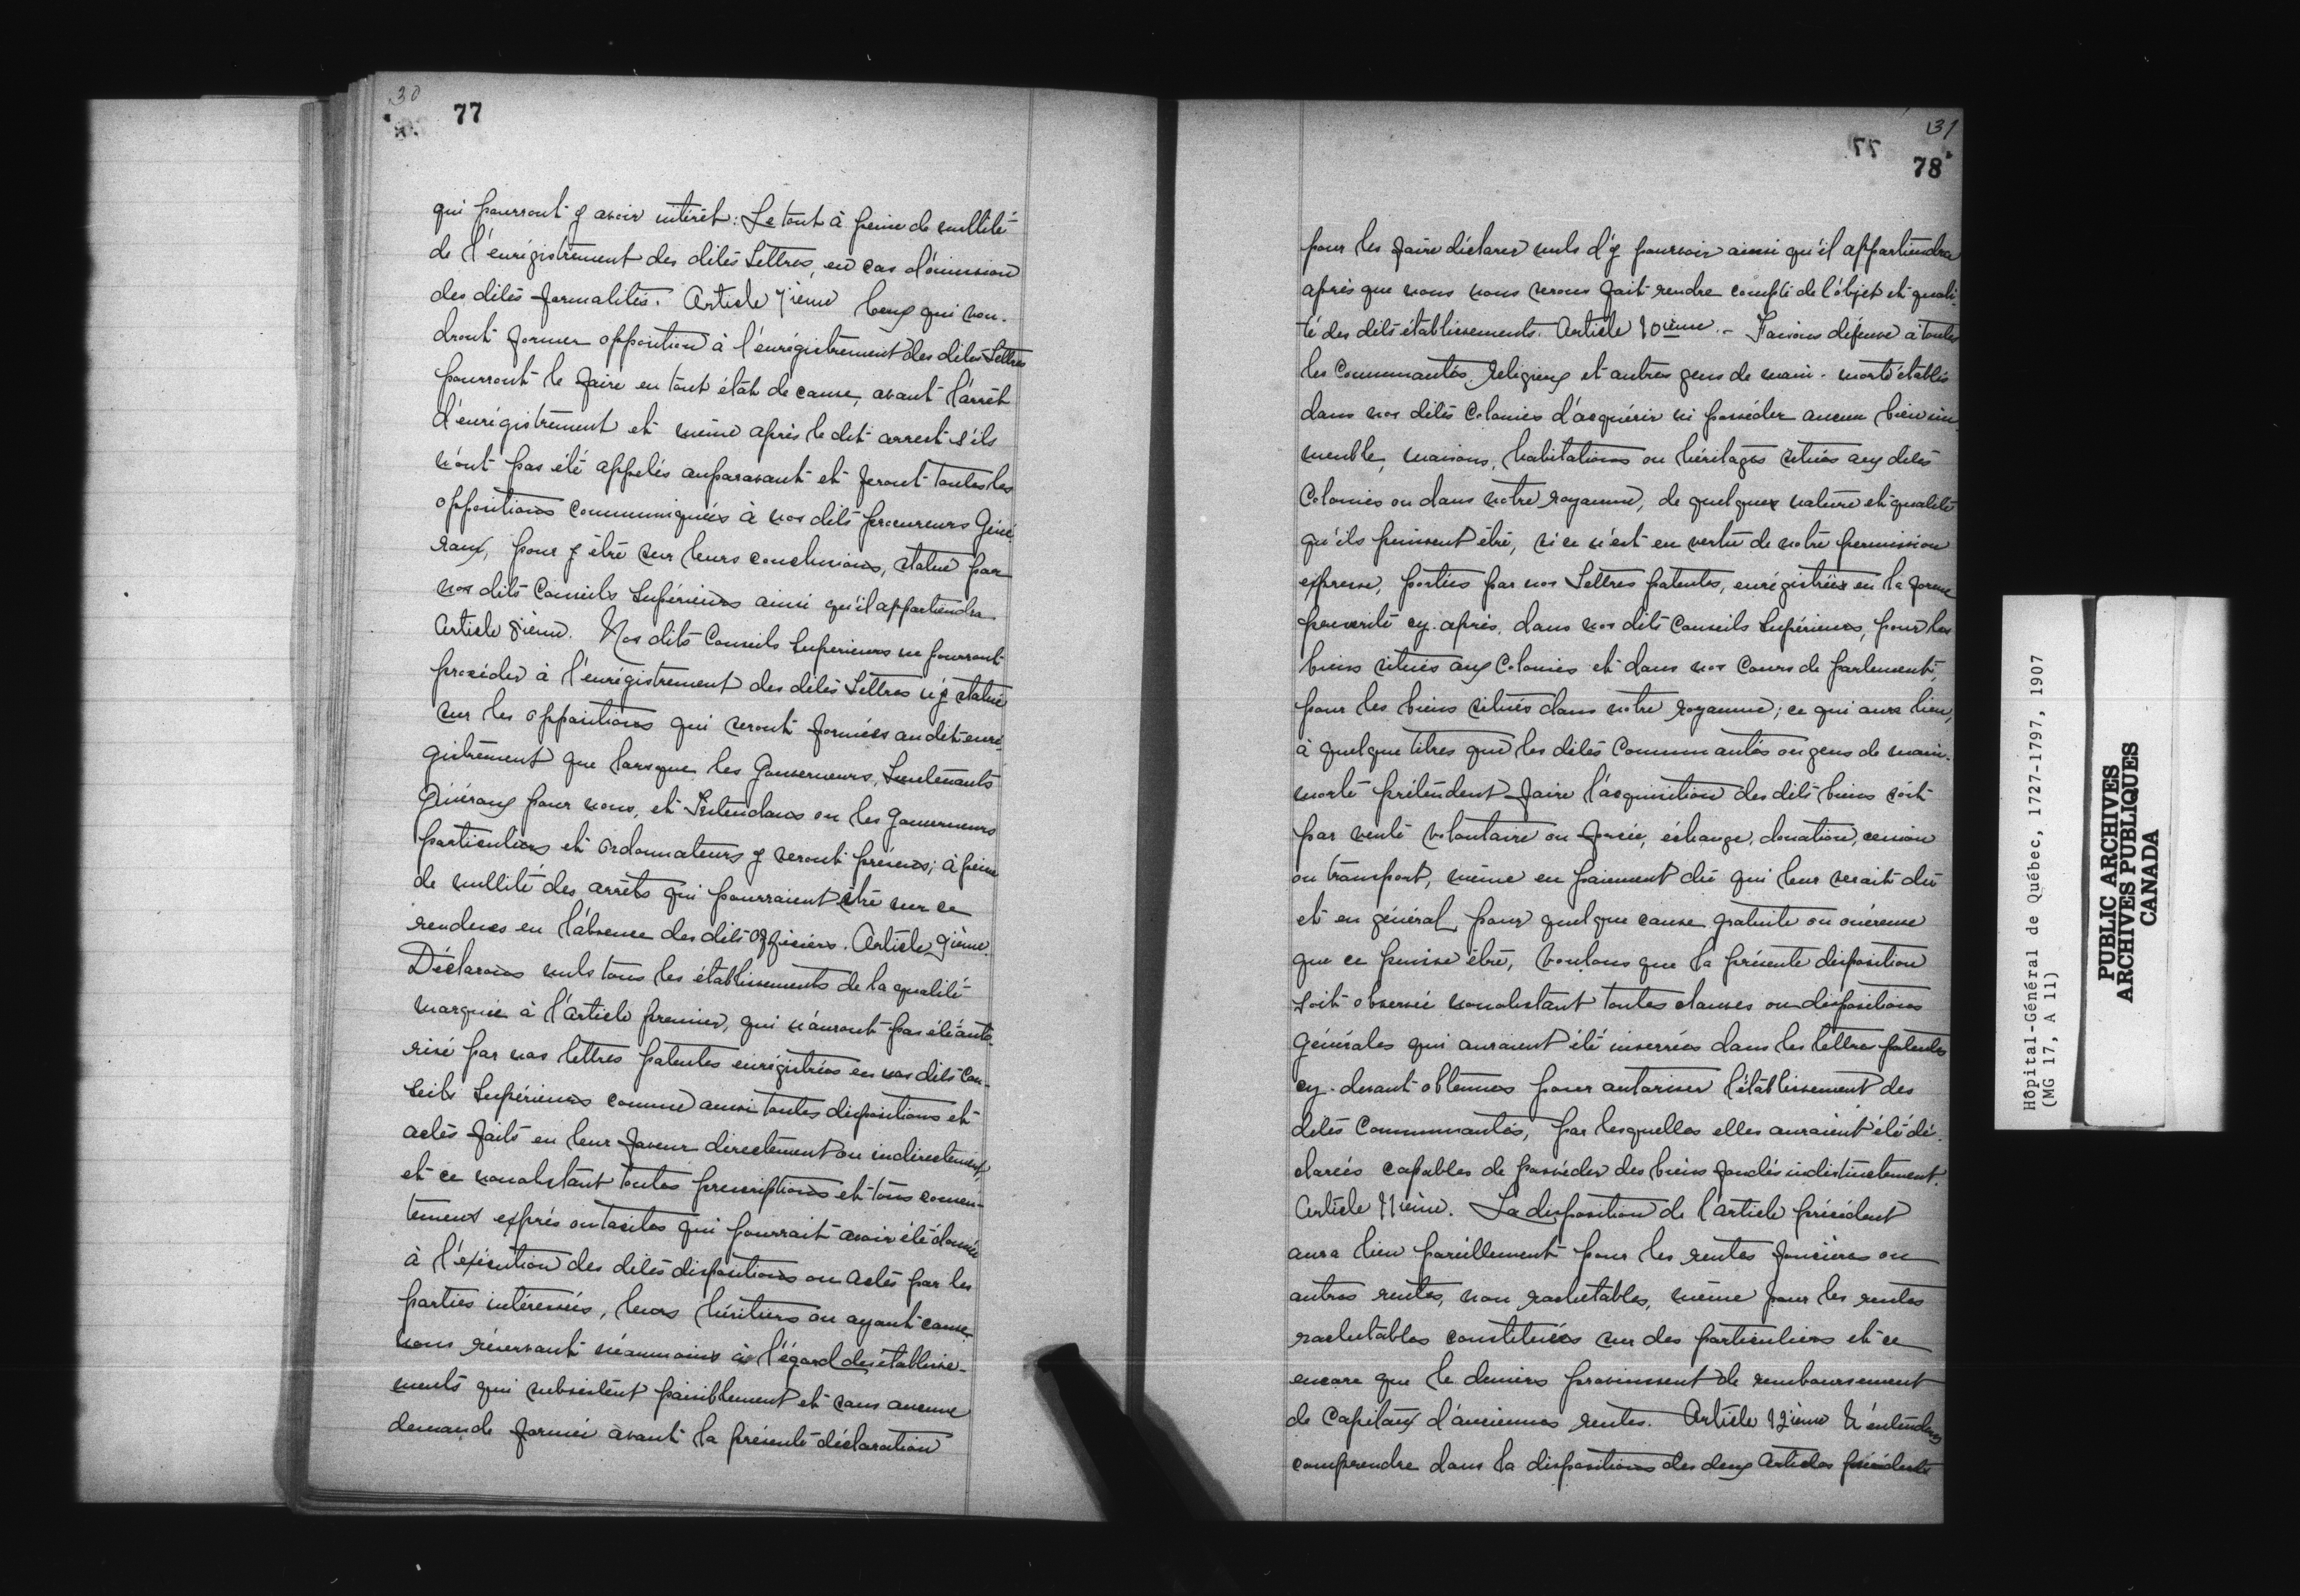 30
77
qui pourront y avoir intérêt: Le tout à peine de nullité
de l'enrégistrement des dites Lettres, en cas d'ômission
des dites formalités. Article 7ième Ceux qui vou-
dront former opposition à l'enrégistrement des dites Lettres
pourront le faire en tout état de cause, avant l'arrêt
d'enrégistrement et même après le dit arrest s'ils
n'ont pas été appelés auparavant et feront toutes les
oppositions communiquées à nos dits procureurs Géné-
raux, pour y être sur leurs conclusions, statué par
nos dits Conseils Supérieurs ainsi qu'il appartiendra
Article 8ième. Nos dits Conseils Supérieurs ne pourront
procéder à l'enrégistrement des dites Lettres ny statué
sur les oppositions qui seront formées au dit enré-
gistrement que lorsque les Gouverneurs, Lieutenants
Généraux pour nous, et Intendans ou les Gouverneurs
particuliers et ordonnateurs y seront présens; à peine
de nullité des arrêts qui pourraient être sur ce
rendues en l'absence des dits officiers. Article 9ième.
Déclarons nuls tous les établissements de la qualité
marquée à l'Article premier, qui n'auront pas été auto-
risé par nos lettres patentes enrégistrées en nos dits Con-
seils Supérieurs comme aussi toutes dispositions et
actes faits en leur faveur directement ou indirectement,
et ce nonobstant toutes prescriptions et tous consen-
tement exprès ou tacites qui pourrait avoir été donnée
à l'exécution des dites dispositions ou actes par les
parties intéressées, leurs héritiers ou ayant cause
nous réservant néanmoins à l'égard des établisse-
ments qui subsistent paisiblement et sans aucune
demande formée avant la présente déclaration
31
78
pour les faire déclarer nuls d'y pourvoir ainsi qu'il appartiendra
après que nous nous serons fait rendre compte de l'objet et quali-
té des dits établissements. Article 10ième. - Faisons défense à toutes
les Communautés, religieux et autres gens de main-morte établis
dans nos dites Colonies d'acquérir ni posséder aucun bien im-
meuble, maisons, habitations ou héritages situés aux dites
Colonies ou dans notre royaume, de quelques nature et qualité
qu'ils puissent être, si ce n'est en vertu de notre permission
expresse, portées par nos Lettres patentes, enrégistrées en la forme
prescrite cy-après, dans nos dits Conseils Supérieurs, pour les
biens situés aux Colonies et dans nos Cours de parlements,
pour les biens situés dans notre royaume; ce qui aura lieu,
à quelque titres que les dites Communautés ou gens de main-
morte prétendent faire l'acquisition des dits biens soit
par vente volontaire ou forcée, échange, donation, cession
ou transport, même en paiement de qui leur serait dû
et en général, pour quelque cause gratuite ou onéreuse
que ce puisse être, Voulons que la présente disposition
soit observée nonobstant toutes clauses ou dispositions
Générales qui auraient été inserrées dans les lettres patentes
cy-devant obtenues pour autoriser l'établissement des
dites Communautés, par lesquelles elles auraient été dé-
clarées capables de posséder des biens fondés indistinctement.
Article 11ième. La disposition de l'article précédent
aura lieu pareillement pour les rentes foncières ou
autres rentes, non rachetables, même pour les rentes
rachetables constituées sur des particuliers et ce
encore que le deniers provinssent de remboursement
de Capitaux d'anciennes rentes. Article 12ième N'entendons
comprendre dans la dispositions des deux Articles précédents
Hôpital-Général de Québec, 1727-1797, 1907
(MG 17, A 11)
PUBLIC ARCHIVES
ARCHIVES PUBLIQUES
CANADA